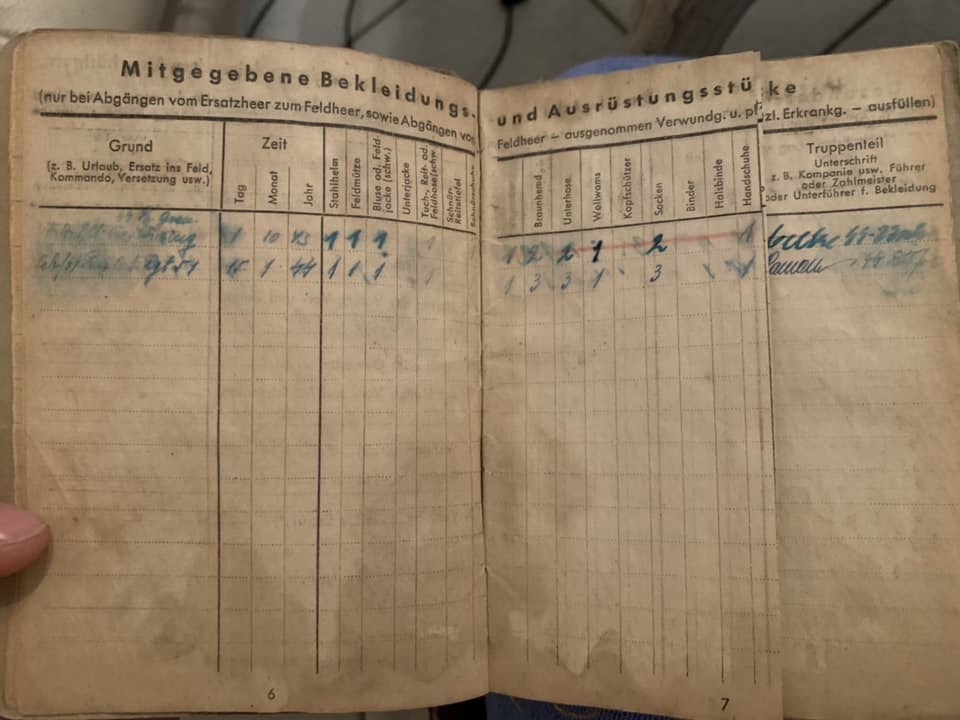 Mitgegebene Bekleidungs- und Ausrüstungsstücke
(nur bei Abgängen vom Ersatzheer zum Feldheer, sowie Abgängen vom Feldheer – ausgenommen Verwundg. u. pl zl. Erkrankg. – ausfüllen)
Grund
(z. B. Urlaub, Ersatz ins Feld,
Kommando, Versetzung usw.)
Zeit
Tag
Monat
Jahr
Stahlhelm
Feldmütze
Bluse od. Feld-
jacke (schw.)
Unterjacke
Tuch-, Reit- od.
Feldhose(schw.)
Schnür-
Reitstiefel
Braunhemd
Unterhose
Wollwams
Kopfschützer
Socken
Binder
Halsbinde
Handschuhe
Truppenteil
Unterschrift
z. B. Kompanie usw. Führer
oder Zahlmeister
oder Unterführer f. Bekleidung
1 10 43 1 1 1 1 1 2 2 1 2 1
15 1 44 1 1 1 1 1 3 3 1 3 1
6
7